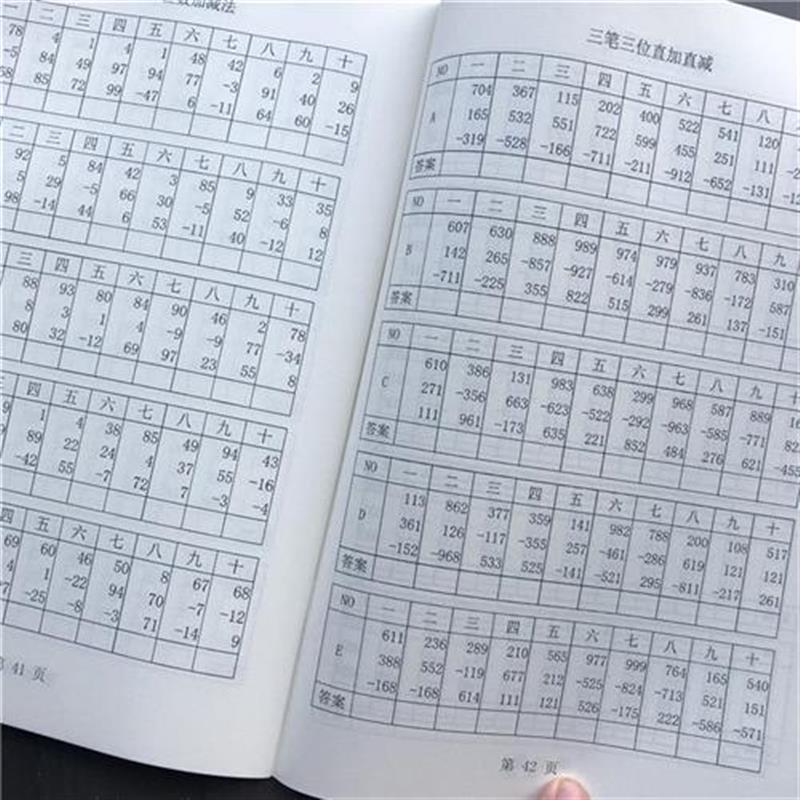 数加减法
一 二 三 四 五 六 七 八 九 十
78 4 1 4 1 48 42 6 2 9
-5 84 49 97 94 77 -3 91 40 26
58 85 72 99 -47 6 -11 64 60 -15
二 三 四 五 六 七 八 九 十
92 5 84 42 3 85 9 33 35
5 29 -5 66 30 -5 52 -6 8
98 -14 44 6 53 -11 40 -12 12
三 四 五 六 七 八 九 十
88 93 80 84 90 46 2 78
8 3 1 4 -9 -9 77 -34
80 32 -12 69 97 23 55 8
四 五 六 七 八 九 十
9 1 4 38 85 49 94 43
89 22 24 4 37 55 -16
-42 55 -7 72 7 -3 -4
四 五 六 七 八 九 十
69 60 46 50 8 67 68
4 1 -22 94 70 -7 -12
-25 -8 -3 71 -14 9
第 41 页
三笔三位直加直减
NO 一 二 三 四 五 六 七 八
704 367 115 202 400 522 541 120
A 165 532 551 722 599 455 251 111
-319 -528 -166 -711 -211 -912 -652 -131
答案
一 二 三 四 五 六 七 八 九
607 630 888 989 974 979 937 783 310
B 142 265 -857 -927 -614 -279 -836 -172 587
-711 -225 355 822 515 299 261 137 -151
答案
NO 一 二 三 四 五 六 七 八 九 十
610 386 131 983 638 299 968 587 889
C 271 -356 663 -623 -522 -292 -963 -585 -771
111 961 -173 635 221 852 484 276 621 -455
答案
NO 一 二 三 四 五 六 七 八 九 十
113 862 377 359 141 982 788 200 108 517
D 361 126 -117 -355 257 -461 -286 619 121 121
-152 -968 533 525 -141 -521 295 -811 -217 261
答案
NO 一 二 三 四 五 六 七 八 九 十
611 236 289 210 565 977 999 764 165 540
E 388 552 -119 677 212 -525 -824 -713 521 151
-168 -168 614 111 121 526 -175 222 -586 -571
答案
第 42 页